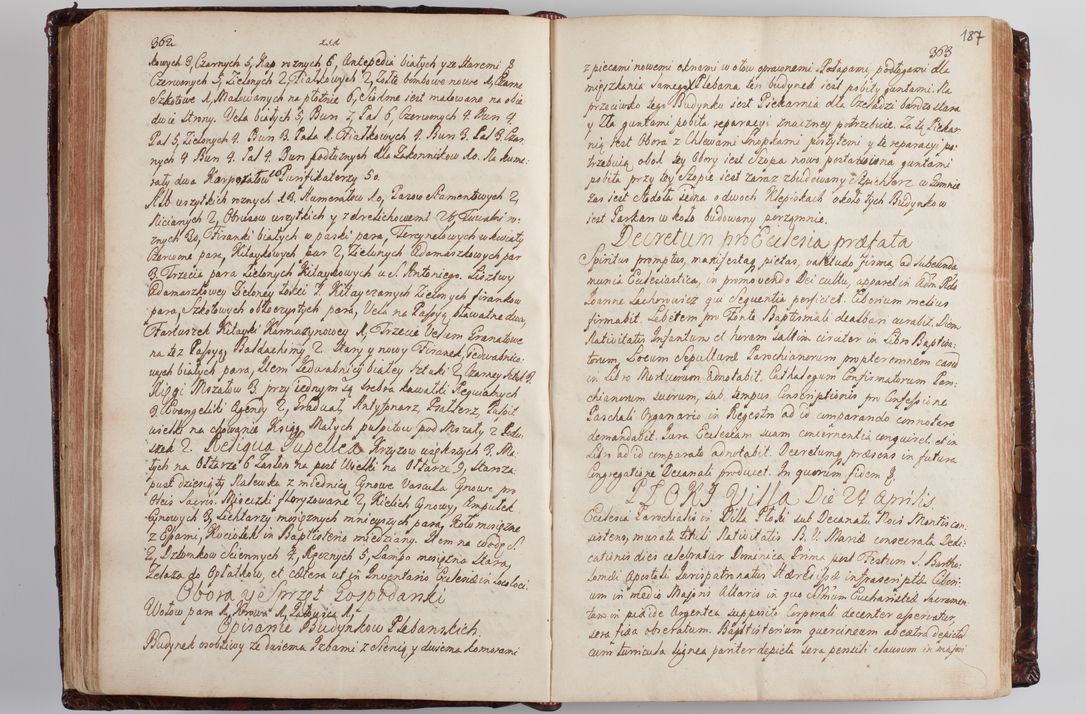 362
kowych 3, Czarnych 5, Kap roznych 6, Antepedia białych y ze staremi 8
Czerwonych 5, Zielonych 2, Fiałkowych 2, Zołte bombowe nowe 1, Czarne
Szkotowe 1, Malowanych na płotnie 6, Siodme iest malowane na obie
dwie strony. Vela białych 5, Burs 7, Pal 6, Czerwonych 4. Burs 4.
Pal 5, Zielonych 4. Burs 3. Pala 1. Fiałkowych 4. Burs 3. Pal 3. Czar-
nych 4 Burs 4. Pal 4. Burs podłuznych dla Zakonnikow 10. Na hume-
raty dwa Korporałow 20 Purifikaterzy 50.
Alb wszytkich roznych 18. Humerałow 10, Pasow 2,
Nicianych 2, Obrusow wszytkich y z drelichowemi
znych 30, Firanki białych w paski para, Tercynelowych w kwiaty
czerwone para, Kitaykowych par 2, Zielonych Adamaszkowych par
3. Trzecia para Zielonych Kitaykowych u S. Antoniego. Listwy
Adamaszkowey Zieloney łokci 7. Kitayczanych Zielonych firankow
para, Szkotowych obłoczystych para, Vela na Passyą bławatne dwa,
Fartuszek Kitayki Karmazynowey 1, Trzecie Velum Granatowe
na też Passyą, Baldachimy 2. Stary y nowy Firanek Jedwabnico-
wych białych para, Item Jedwabnicy białey Sztuki 2,
Xięgi Mszałow 3 przy iednym są srebra kawałki
3. Ewangeliki Agendy 2, Graduał, Antyfonarz, Psałterz, Pulpit
wielki na chowanie Xiąg, Małych pulpitow pod Mszały 2
szek 2. Reliqua Supellex Krzyzow większych 3. Ma-
łych na Ołtarze 6 Zasłon na post Wielki na Ołtarze 9,
puas dziesięty Nalewka z miednicą Cynowe Vascula Cynowe pro
Oleis Sacris. Miseczki floryzowane 2, Kielich Cynowy, Ampułek
Cynowych 3, Lichtarzy mosięznych mnieyszych para,
z Essami, Kociołek in Baptisterio miedziany. Item na wodę S.
2, Dzwonkow Sciennych 2. Ręcznych 5, Lampa mosięzna Stara,
Zelaza do Opłatkow, et cætera ut in Inventario Ecclesiæ in
Obora y Sprzęt Gospodarski
Wołow para 1, Krowa 1, Jałowica 1.
Opisanie Budynkow Plebanskich.
Budynek osobliwy ze dwiema Izbami z Sienią y dwiema komorami
187
363
z piecami nowemi oknami w ołow oprawnemi Posłagami, podłogami dla
mieszkania samego X. Plebana ten budynek iest pobity guntami. Na
przeciwko tego Budynku iest Piekarnia dla Czeladzi bardzo stara
y Zła guntami pobita reparacyi znaczney potrzebuie. Za tą Piekar-
nią iest Obora z Chlewami Snopkami poszytemi y te reparacyi po-
trzebuią, obok tey Obory iest Szopa nowo postawiona guntami
pobita przy tey Szopie iest zaraz zbudowany Spichlerz w Gumnie
zas iest Stodoła iedna o dwoch Klepiskach około tych Budynkow
iest Parkan w koło budowany porządnie.
Decretum pro Ecclesia præfata
Spiritus promptus, manifesta pietas, valetudo firma, ad subeunda
munia Ecclesiastica, in promovendo Dei cultu, apparet in Rdo
Ioanne qui sequentia perficiet. Ciborium melius
firmabit. Lebetem pro Fonte Baptismali dealbari curabit. Diem
Nativitatis Infantum et horam saltim circiter in Libro Baptiza-
torum, Locum sepulturæ Parochianorum præter
in Libro Mortuorum adnotabit. Cathalogum Confirmatorum Par-
chianorum suorum, sub tempus Conscriptionis pro Confessione
Paschali Organario in Regestro ad id comparando connotare
demandabit. Iura Ecclesiam suam concernentia conquiret et in
Libro ad id comparato adnotabit. Decretum præsens in futura
Congregatione Decanali producet. In quorum fidem J.
PŁOKI Villa Die 24 Aprilis.
Ecclesia Parochialis in Villa Płoki sub Decanatu Novi Montis con-
sistens, murata tituli Nativitatis B. V. Mariæ consecrata Dedi-
cationis dies celebratur Dominica Prima post Festum S. Bartho-
lomæi Apostoli Iurispatronatus Hæredis infrascriptæ Cibori-
um in medio Majoris Altaris in quo SSmum Eucharistiæ Sacramen-
tum in pixide Argentea supposito Corporali decenter asservatur,
sera fixa obseratum. Baptisterium quercineum albeatro depicto
cum turricula lignea pariter depicta sera pensili clausum in majori